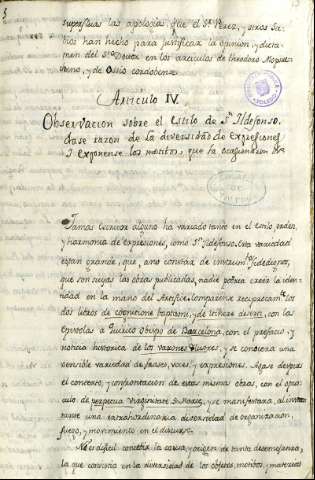 superfluas las apologias que el Sr. Perez, y otros Sa-
bios han hecho para justificar la opinion, y dicta-
men del Sr. Doctor en los articulos de theodoro Mopsues-
teno, y de Osio cordobense.
Articulo IV.
Observacion sobre el estilo de Sn. Ildefonso.
dase razon de la diversidad de expresiones
y exponense los motibos, que la ocasionaron
Jamas Escritor alguno ha variado tanto en el estilo, orden,
y harmonia de expresiones, como Sn. Ildefonso. Esta variedad
es tan grande, que, a no constar de
que son suyas las obras publicadas, nadie podria creer la iden-
tidad en la mano del Artifice. Comparense reciprocamte. los
dos libros de cognitione baptismi, y de itinere deserti, con las
epistolas a Quirico obispo de Barcelona, con el prefacio, y
noticia historica de los varones ilustres, y se conocera una
sensible variedad de frases, voces, y expresiones. Hagase despues
el contexto, y confrontacion de estas mismas obras, con el opus-
culo de perpetua Virginitate Sae. Mariae, y se manifestara, al instante
una extrahordinaria disparidad de organizacion,
fuego, y movimiento en el discurso.
No es dificil concebir la causa, y origen de tanta desemejanza,
la que consistia en la diversidad de los objetos, motibos, y materias